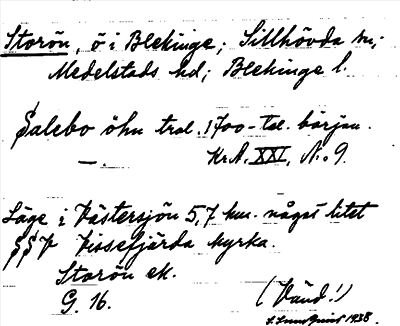 Storön, ö i Blekinge; Sillhövda sn;
Medelstads hd; Blekinge l.
Salebo öhn tral. 1700-tal. början.
—. Kr. A. XXI, N:o 9.
Läge i Västersjön 5,7 km. något litet
Vissefjärda kyrka.
Storön ek.
G. 16. (Vänd!)
1938.